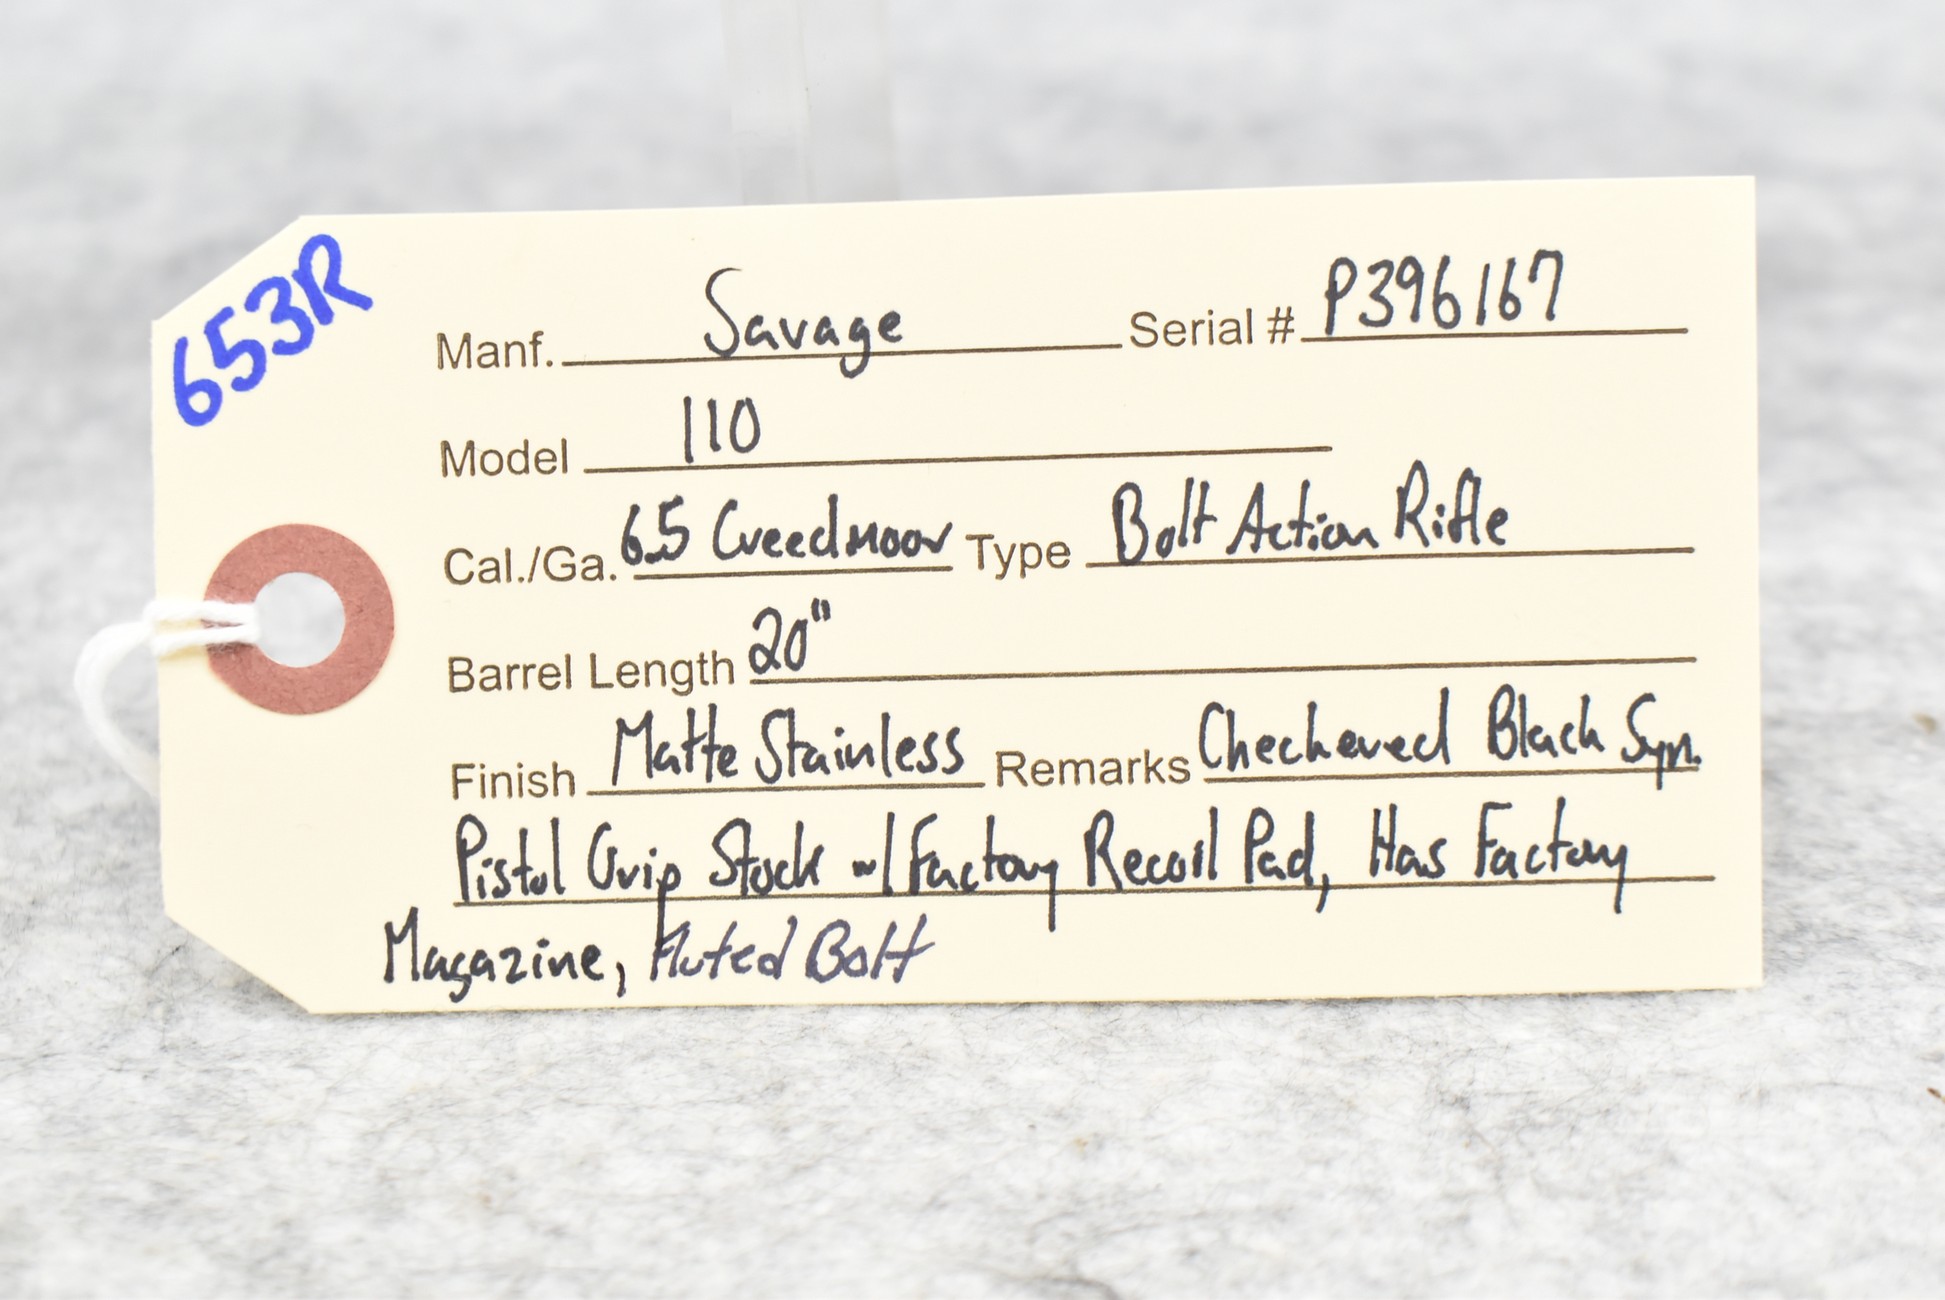 653R
Manf. Savage Serial # P396167
Model 110
Cal./Ga. 6.5 Creedmoor Type Bolt Action Rifle
Barrel Length 20"
Finish Matte Stainless Remarks Checkered Black Syn.
Pistol Grip Stock w/ Factory Recoil Pad, Has Factory
Magazine, Fluted Bolt